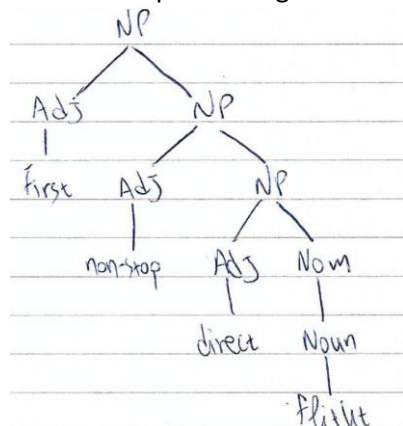 NP
Adj NP
first Adj NP
non-stop Adj Nom
direct Noun
flitht